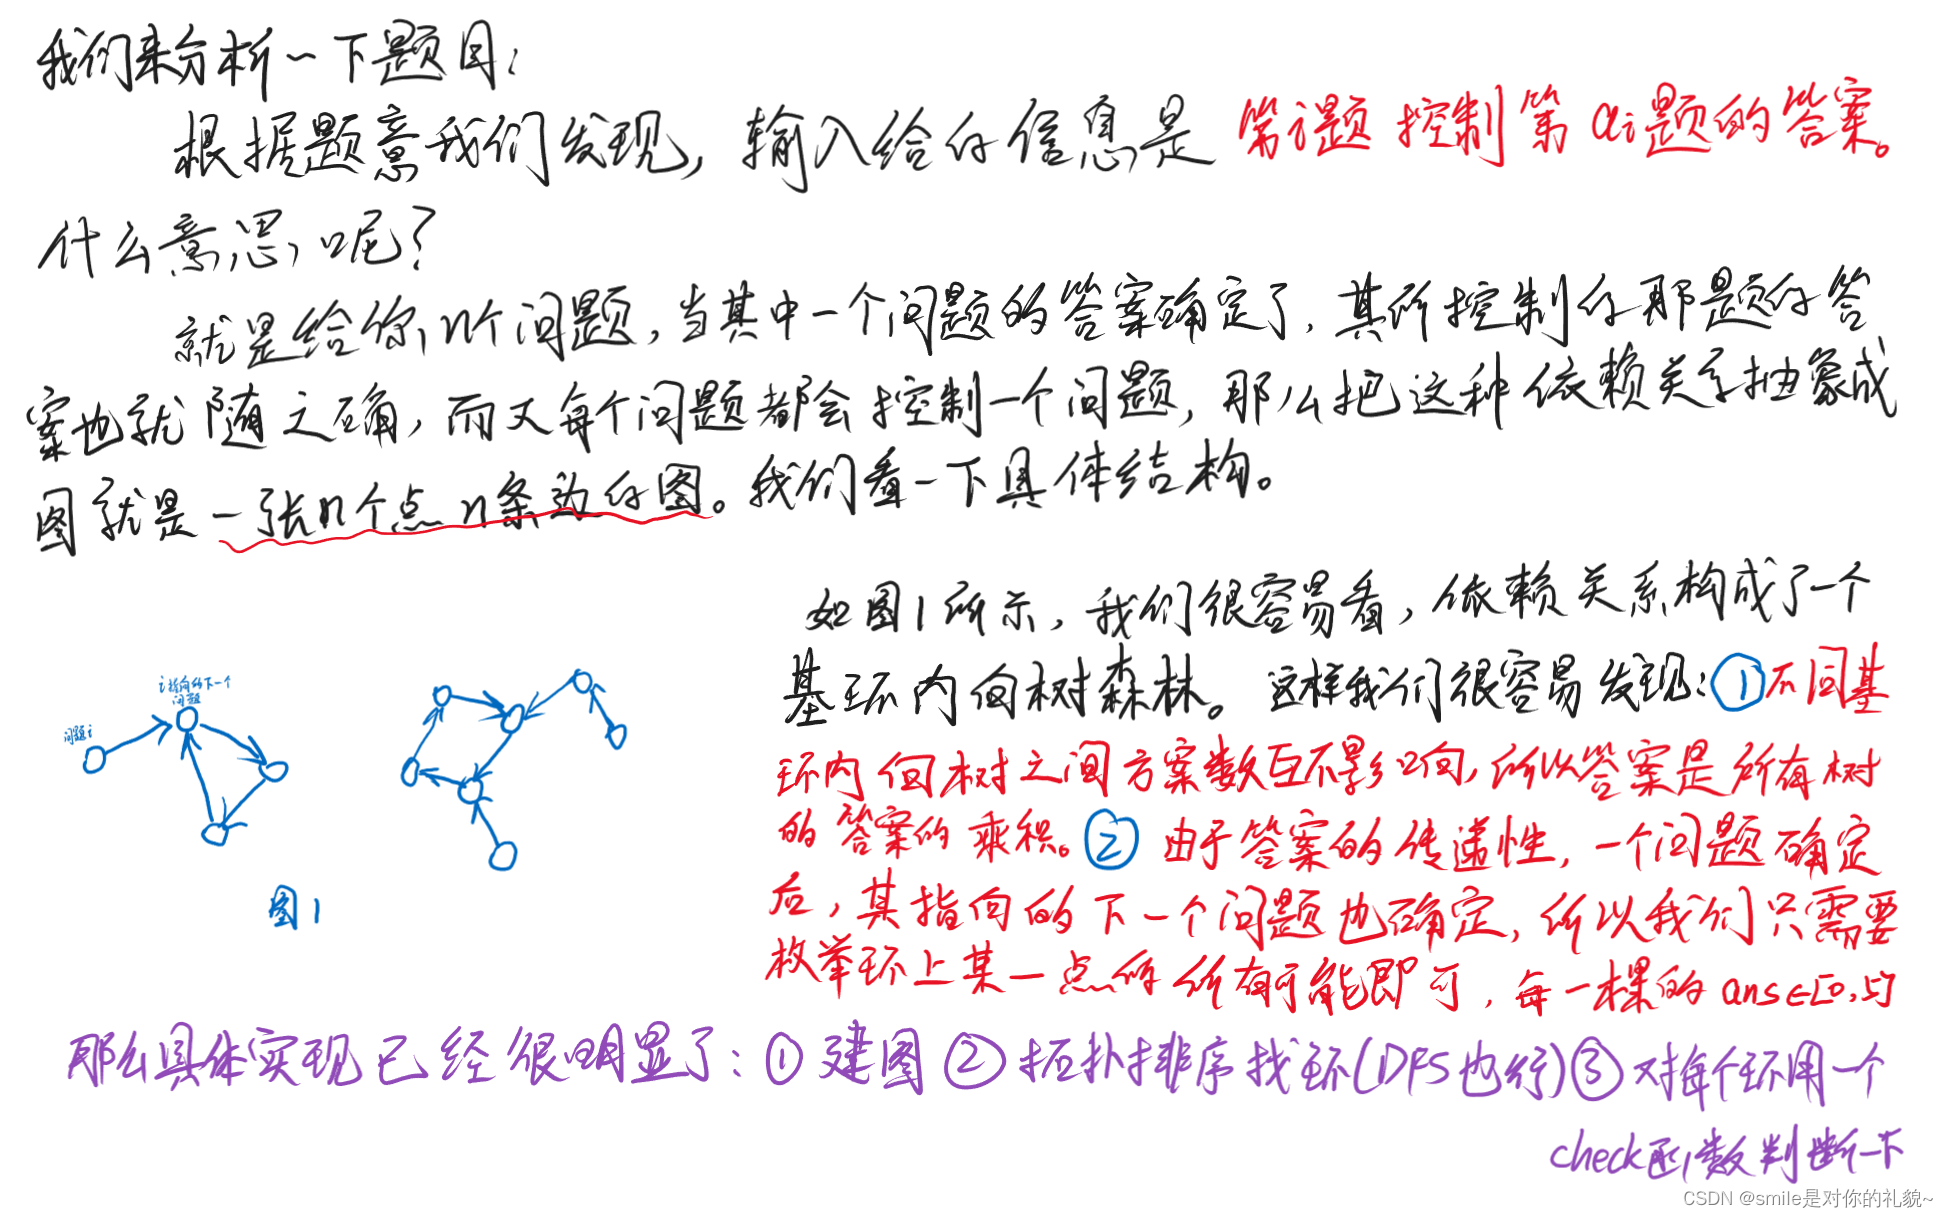 我们来分析一下题目：
根据题意我们发现，输入给的信息是 第i题 控制第 ai题的答案。
什么意思呢？
就是给你n个问题，当其中一个问题的答案确定了，其所控制的那题的答
案也就随之确，而又每个问题都会控制一个问题，那么把这种依赖关系抽象成
图就是一张n个点n条边的图。我们看一下具体结构。
如图1所示，我们很容易看，依赖关系构成了一个
基环内向树森林。这样我们很容易发现：①不同基
环内向树之间方案数互不影响，所以答案是所有树
的答案的乘积。② 由于答案的传递性，一个问题确定
后，其指向的下一个问题也确定，所以我们只需要
枚举环上某一点的所有可能即可，每一棵的ans∈[0,5]
问题i
i指向的下一个
问题
图1
那么具体实现已经很明显了：①建图②拓扑排序找环(DFS也行)③对每个环用一个
check函数判断一下
CSDN @smile是对你的礼貌~